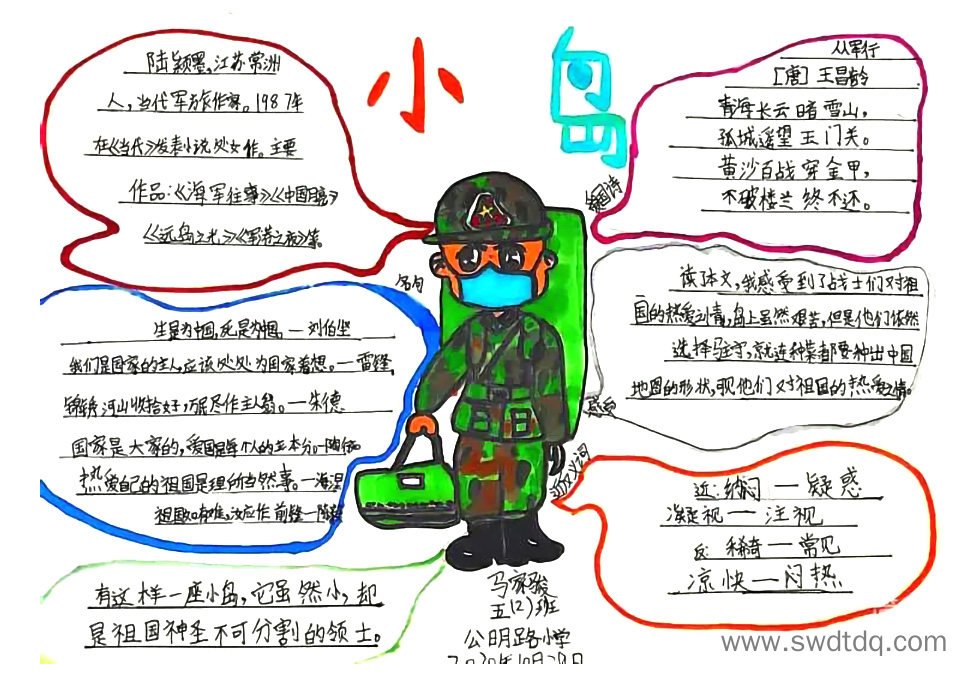 小岛
陆颖墨,江苏常洲
人,当代军旅作家。1987年
在《当代》发表小说处女作。主要
作品:《海军往事》《中国月亮》
《远岛之光》《军港之夜》等。
从军行
[唐] 王昌龄
青海长云暗雪山,
孤城遥望玉门关。
黄沙百战穿金甲,
不破楼兰终不还。
爱国诗
名句
生是为中国,死是为中国。—刘伯坚
我们是国家的主人,应该处处为国家着想。—雷锋
锦绣河山收拾好,万民尽作主人翁。—朱德
国家是大家的,爱国是每个人的本分。—陶行知
热爱自己的祖国是理所当然事。—海涅
祖国如有难,汝应作前锋—陈毅
读了本文,我感受到了战士们对祖
国的热爱之情,岛上虽然艰苦,但是他们依然
选择驻守,就连种菜都要种出中国
地图的形状,现他们对祖国的热爱之情。
感悟
近反义词
近:纳闷—疑惑
凝视—注视
反:稀奇—常见
凉快—闷热
有这样一座小岛,它虽然小,却
是祖国神圣不可分割的领土。
马家骏
五(2)班
公明路小学
2020年10月29日
www.swdtdq.com